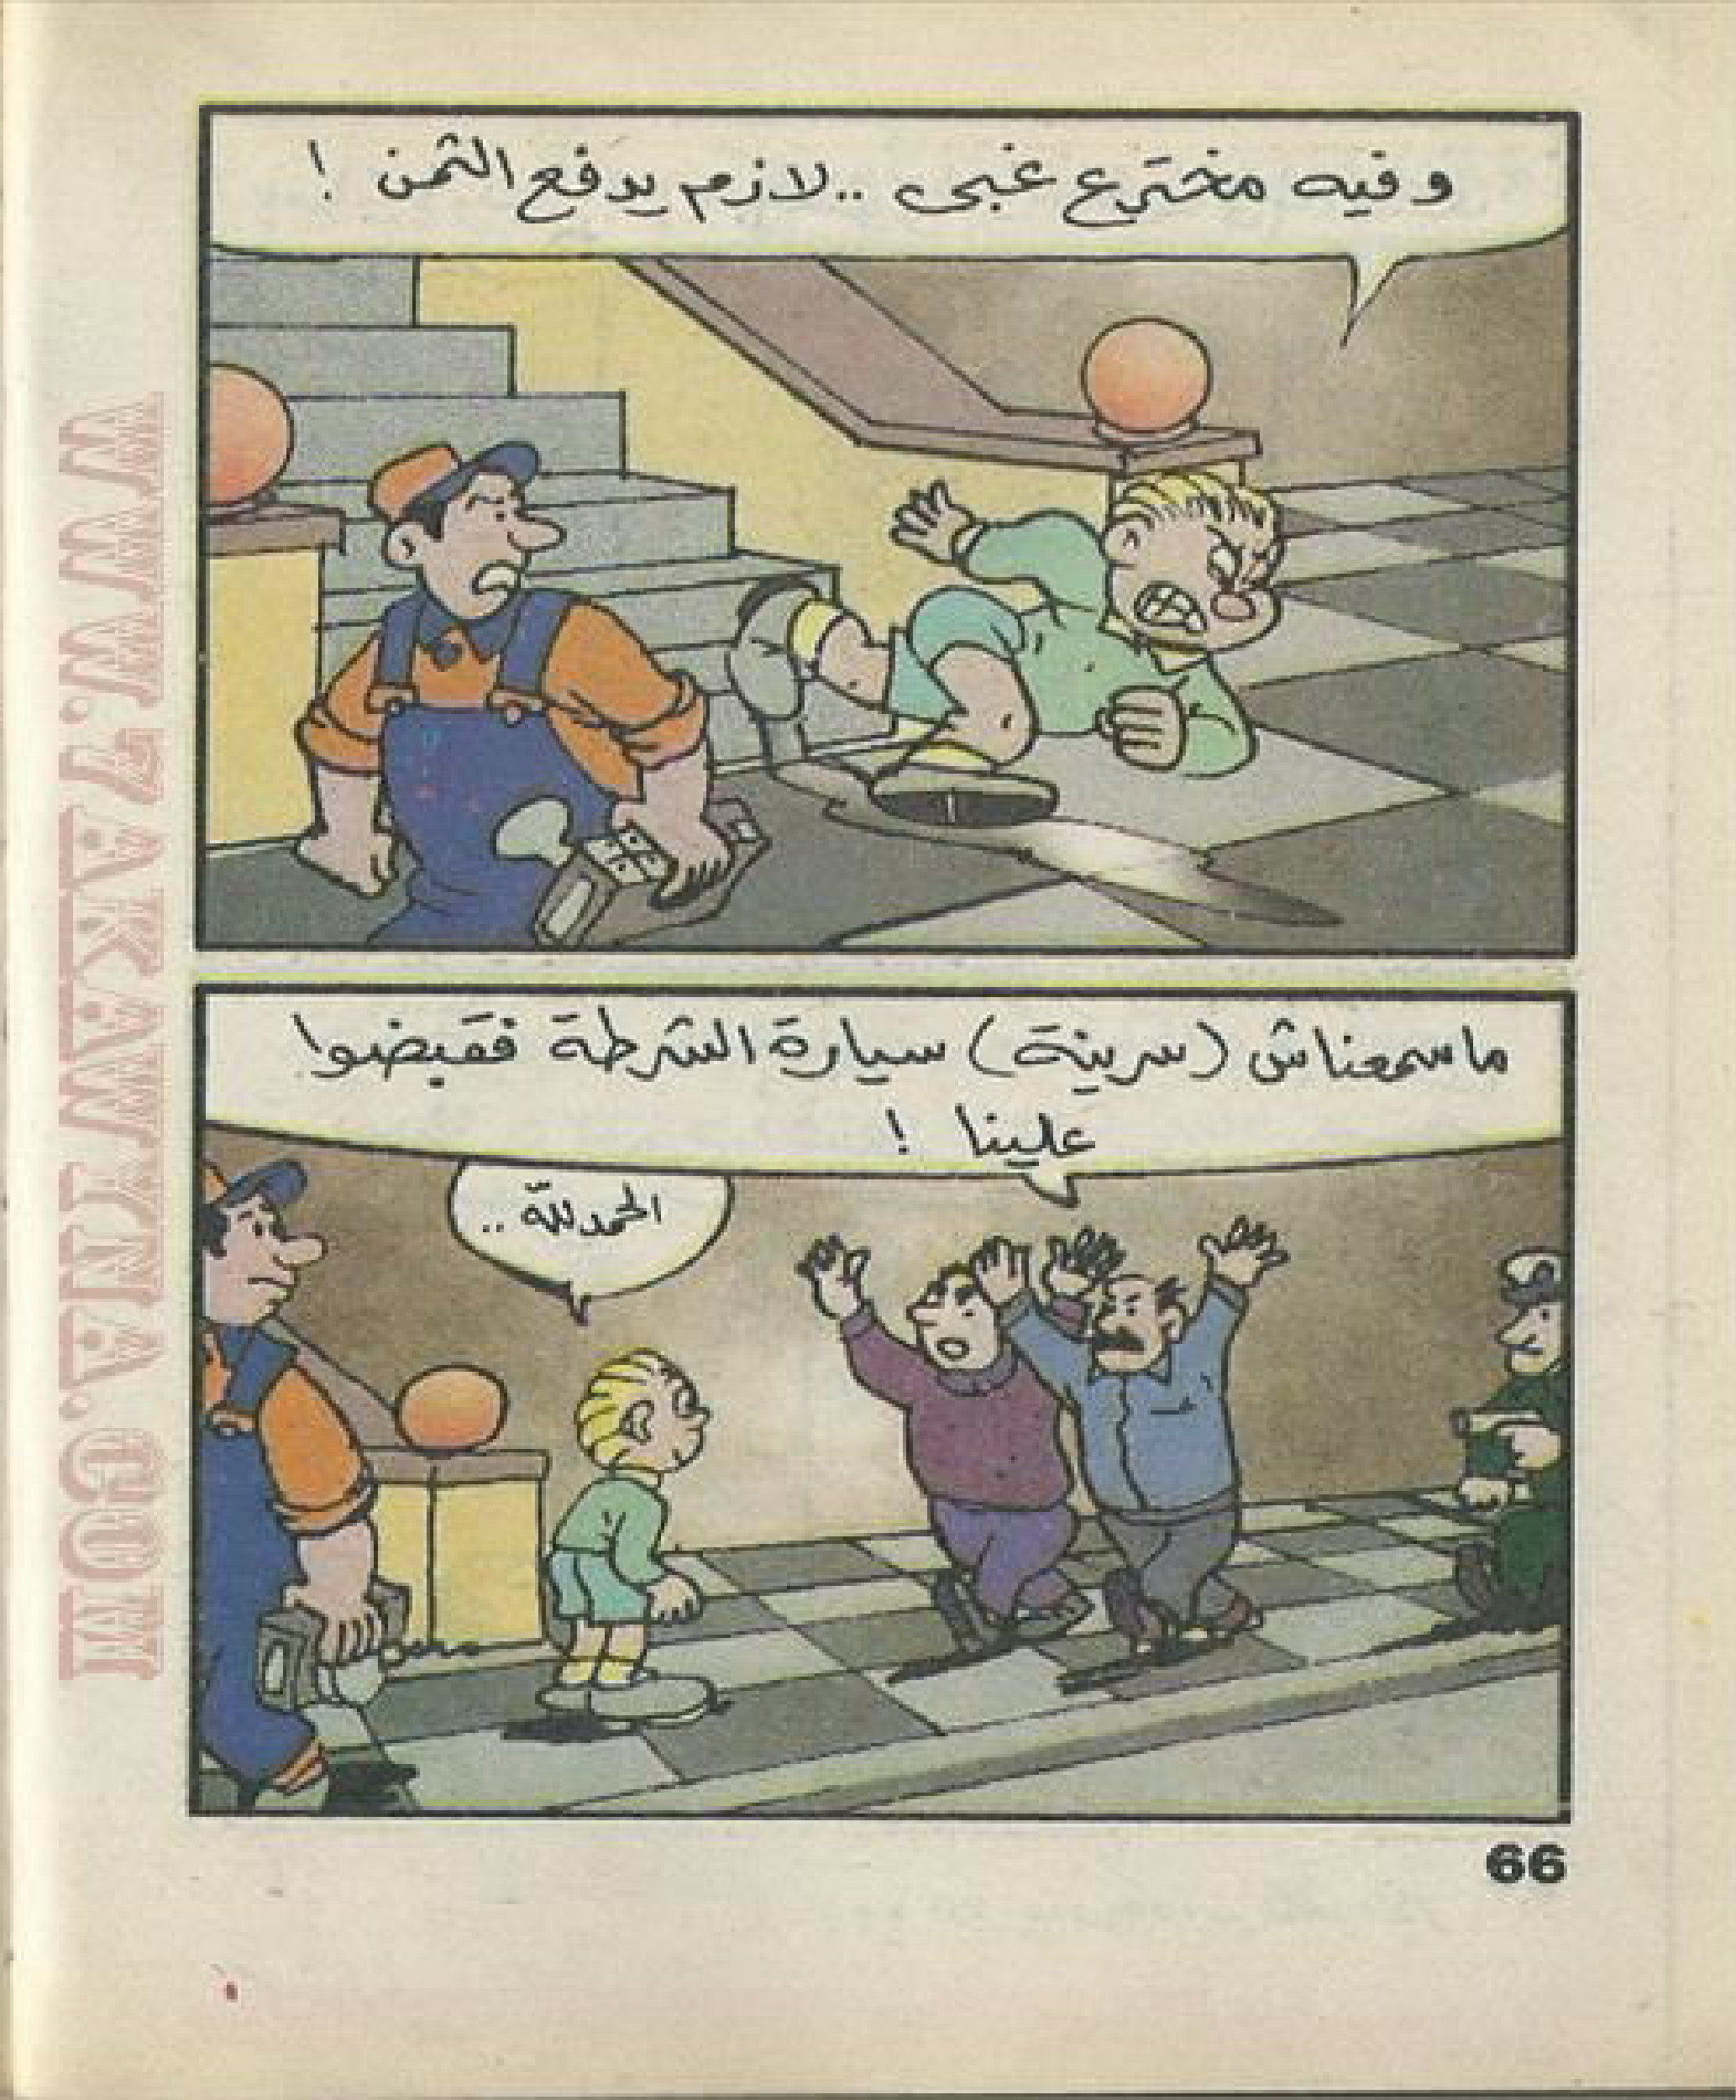 وفيه مخترع غبى .. لازم يدفع الثمن !
ماسمعناش (سرينة) سيارة الشرطة فقبضوا
علينا !
الحمد لله ..
66
WWW.7AKAWTNA.COM